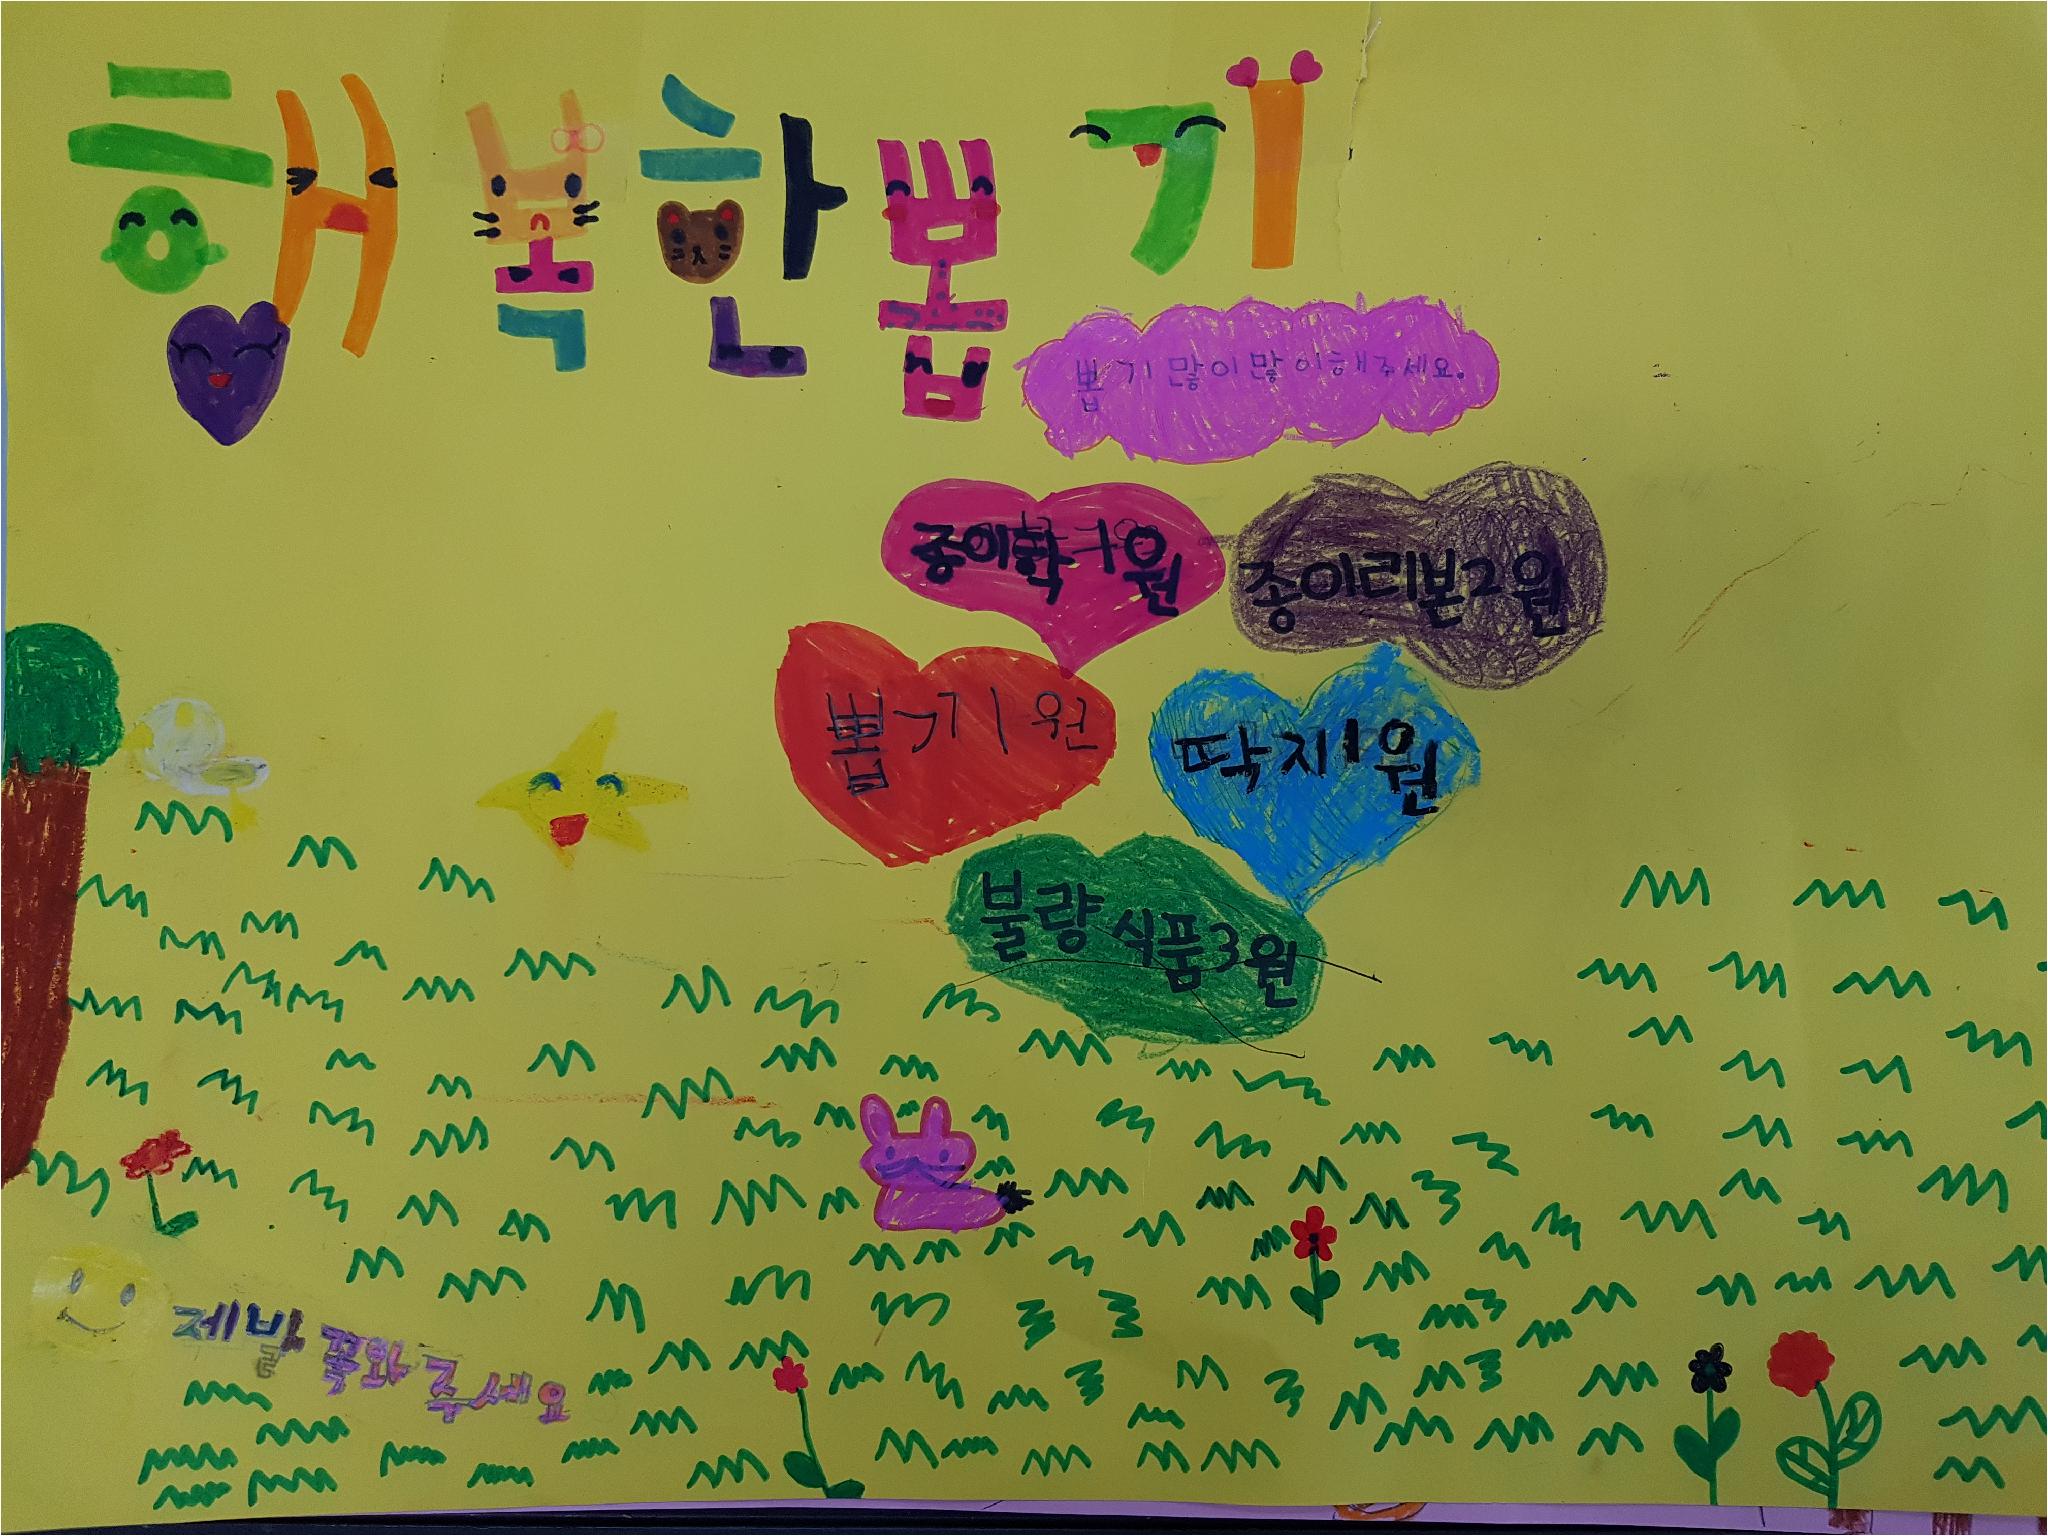 행복한뽑기
뽑기많이많이해주세요.
종이학 1원
종이리본2원
뽑기1원
딱지1원
불량식품3원
제발 뽑아주세요